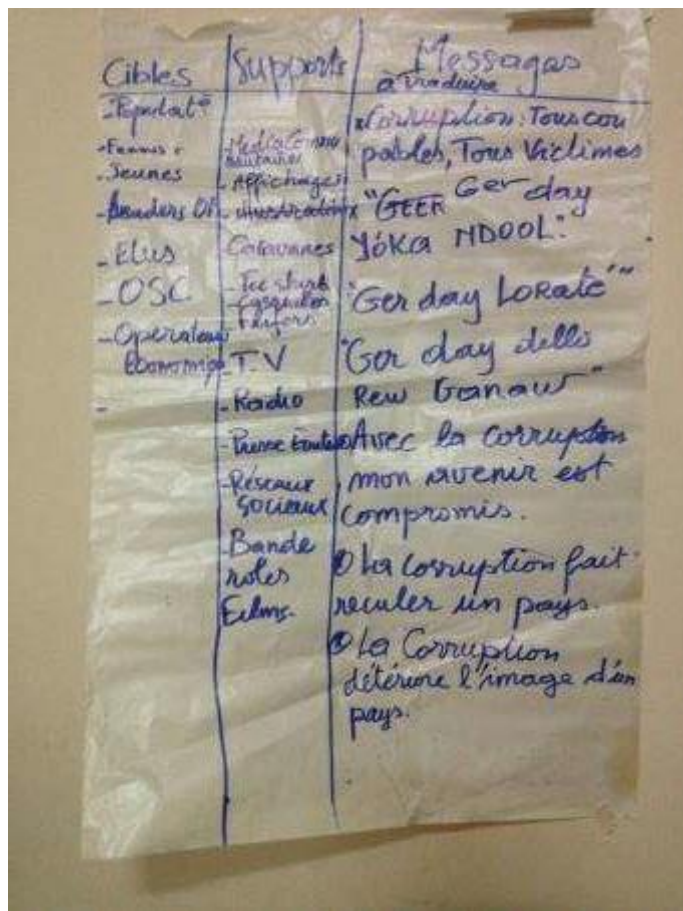 Cibles
- Populat°
- Femmes
- Jeunes
- Leaders
- Elus
- OSC
- Operateurs
Economiq
-
Supports
- Media Commu
nautaires
- Affichages
- illustrations
Caravanes
- Tee shirt
- Casquettes
T.V
- Radio
- Presse Ecrite
- Réseaux
sociaux
- Bande
roles
Films.
Messages
à traduire
Corruption : Tous cou
pables, Tous Victimes
"GEER Ger day
YÓKA NDOOL."
"Ger day LORaté"
"Ger day dello
Rew Ganaw"
Avec la corruption
mon avenir est
compromis.
La Corruption fait
reculer un pays.
La Corruption
détériore l'image d'un
pays.